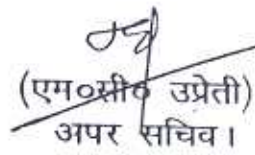 (एम०सी० उप्रेती)
अपर सचिव।